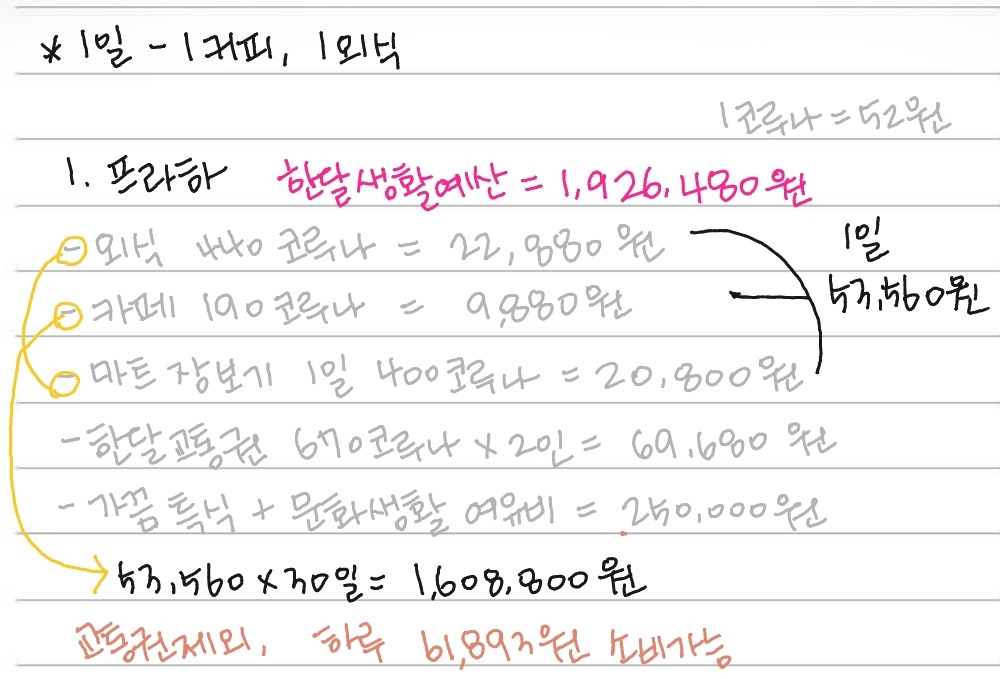 * 1일 - 1커피, 1외식
1코루나 = 52원
1. 프라하 한달생활예산 = 1,926,480원
- 외식 440코루나 = 22,880원
1일
- 카페 190코루나 = 9,880원
53,560원
- 마트 장보기 1일 400코루나 = 20,800원
- 한달교통권 670코루나 x 2인 = 69,680원
- 가끔 특식 + 문화생활 여유비 = 250,000원
53,560 x 30일 = 1,608,800원
교통권제외, 하루 61,893원 소비가능